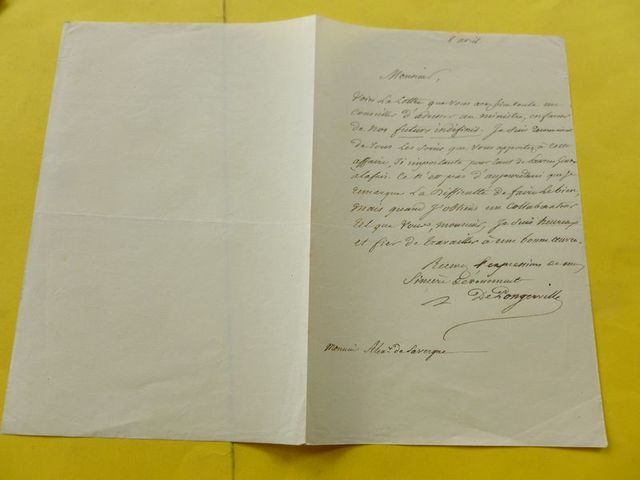 8 avril
Monsieur,
Voici la lettre que vous avez
conseillé d'adresser au ministre, en faveur
de nos futurs indéfinis. Je suis
de tous les soins que vous apportez à cette
affaire, si importante pour tant de
à la fois. Ce n'est pas d'aujourd'hui que je
remarque la difficulté de faire le bien,
mais quand j'obtiens un collaborateur
tel que vous, monsieur, je suis heureux
et fier de travailler à une bonne œuvre.
Recevez l'expression de mon
sincère dévouement
De Pongerville
Monsieur Alexre de Lavergne